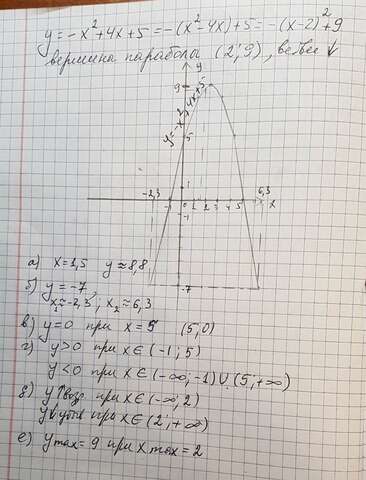 y = -x² + 4x + 5 = -(x² - 4x) + 5 = -(x-2)² + 9
вершина параболы (2; 9), ветви ↓
y
9
y = -x² + 4x + 5
5
-2,3
-1
0
1
2
5
6,3
x
-1
-7
а) x = 1,5 y ≈ 8,8
б) y = -7,
x₁ ≈ -2,3; x₂ ≈ 6,3
в) y = 0 при x = 5 (5; 0)
г) y > 0 при x ∈ (-1; 5)
y < 0 при x ∈ (-∞; -1) ∪ (5; +∞)
д) y ↑ возр при x ∈ (-∞; 2)
y ↓ убыв при x ∈ (2; +∞)
е) y max = 9 при x max = 2